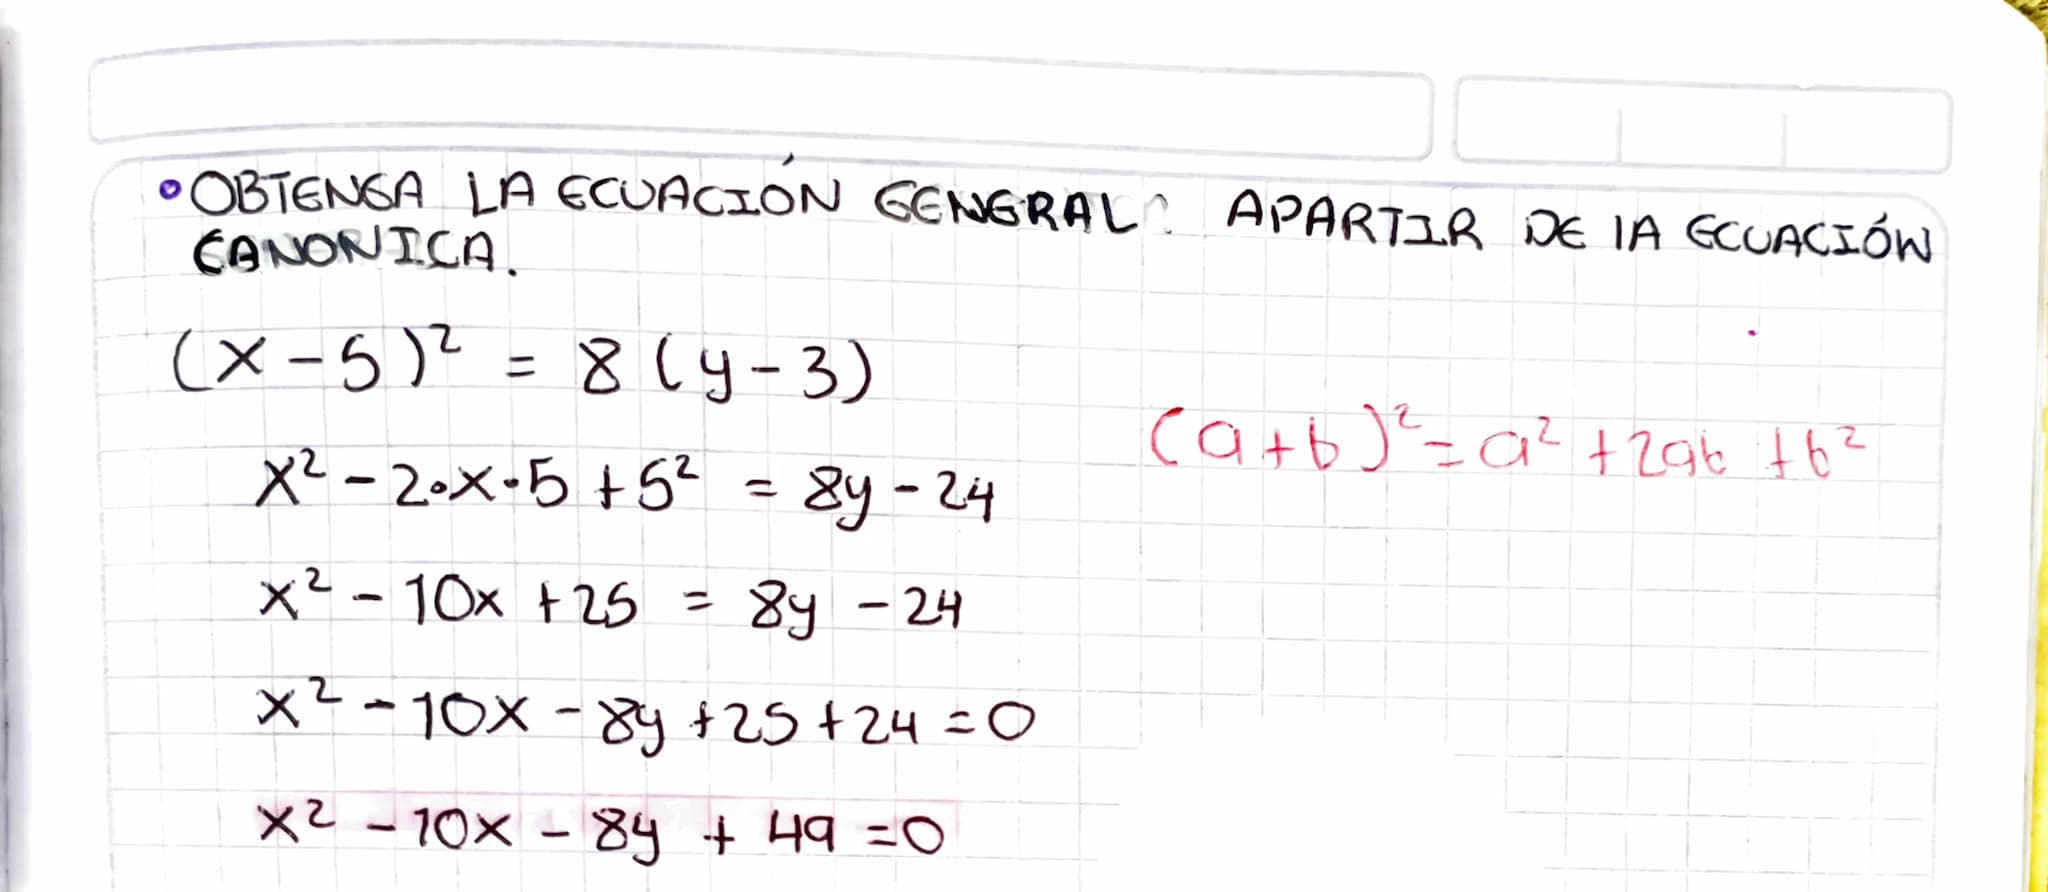 • OBTENGA LA ECUACIÓN GENERAL APARTIR DE lA ECUACIÓN
CANONICA.
(x - 5)² = 8 (y - 3)
(a+b)² = a² + 2ab + b²
x² - 2•x•5 + 5² = 8y - 24
x² - 10x + 25 = 8y - 24
x² - 10x - 8y + 25 + 24 = 0
x² - 10x - 8y + 49 = 0